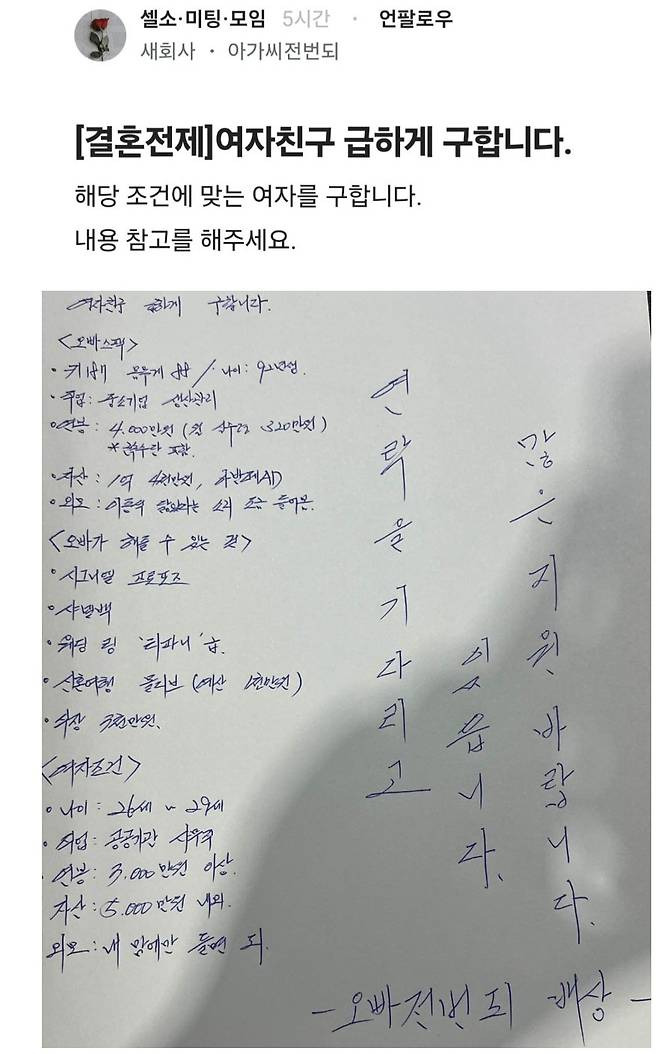 셀소·미팅·모임 5시간 · 언팔로우
새회사 · 아가씨전번되
[결혼전제]여자친구 급하게 구합니다.
해당 조건에 맞는 여자를 구합니다.
내용 참고를 해주세요.
여자친구 급하게 구합니다.
<오빠스펙>
• 키 몸무게 / 나이: 92년생.
• 직업: 중소기업 생산관리
• 연봉: 4.000만원 (월 실수령 320만원)
* 포함.
• 자산: 1억 4천만원,
• 외모: 닮았다는 소리 조금 들어봄.
<오빠가 해줄 수 있는 것>
• 시그니엘 프로포즈
• 샤넬백
• 웨딩 링 '티파니'급.
• 신혼여행 몰디브 (예산 1천만원)
• 5천만원.
<여자조건>
• 나이: 26세 ~ 29세
• 직업: 공공기관 사무직
• 연봉: 3.000만원 이상.
자산: 5.000만원 내외.
외모: 내 맘에만 들면 되.
연락을 기다리고
있읍니다.
많은 지원 바랍니다.
- 오빠전번되 배상 -